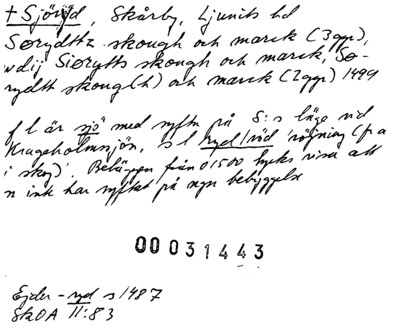 † Sjöryd, Skårby, Ljunits hd
Sørydttz skough och marck (3 ggr),
wdij Siørytts skough och marck, Sø-
rydtt skoug(h) och marck (2 ggr) 1499
f l är sjö med syftn på S:s läge vid
Krageholmssjön, s l ryd/rið 'röjning (på
i skog)'. Beläggen från ö1500 tycks visa att
n ink har syftat på ngn bebyggelse
00031443
Ejder-ryd s 1487
SkOA II:83